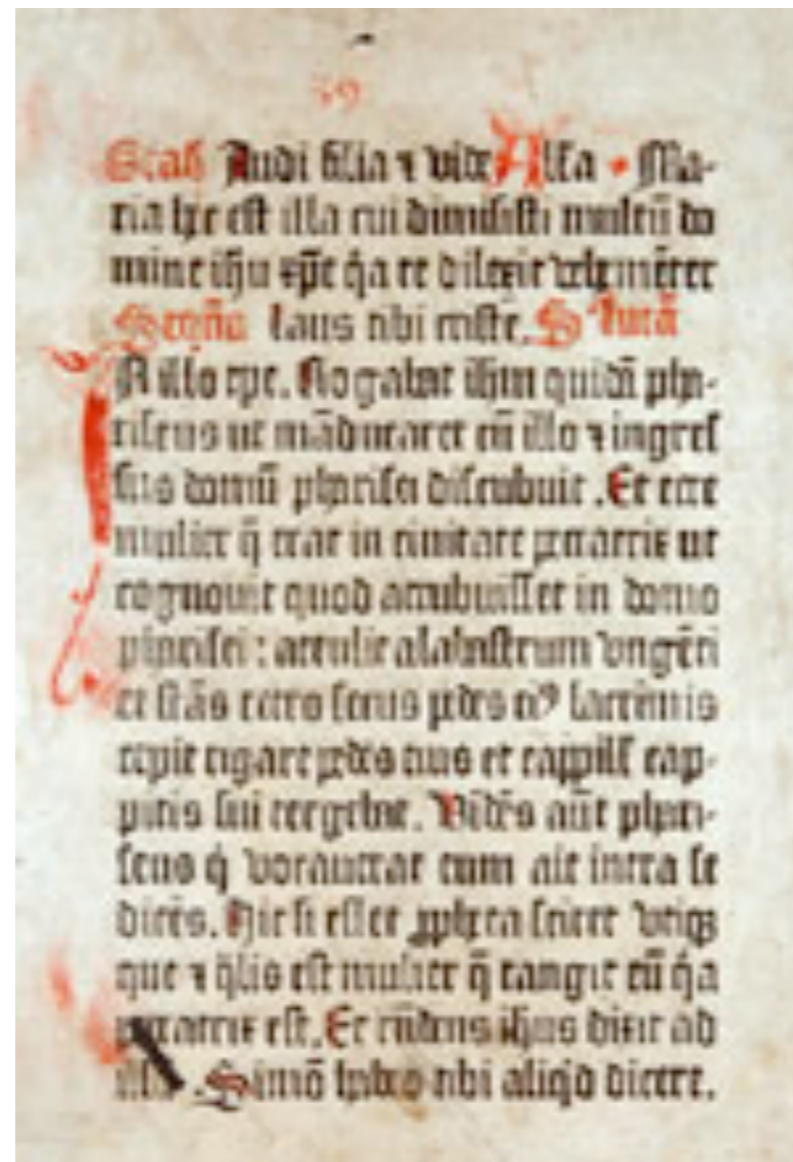 59
Audi filia ⁊ vide Alľa Ma-
ria hec est illa cui dimisisti multū do
mine ihu xp̄e q̇a te dilexit vehemēter
Laus tibi criste.
N illo tpe. Rogabat ihm quidā pha-
riseus ut māducaret cū illo ⁊ ingres
sus domū pharisei discubuit. Et ecce
mulier q̄ erat in civitate peccatrix ut
cognouit quod accubuisset in domo
pharisei: attulit alabastrum vngēti
et stās retro secus pedes eiꝰ lacrimis
cepit rigare pedes eius et cap-
pitis sui tergebat. Vidēs aūt phari-
seus q̇ vocauerat eum ait intra se
dicēs. Hic si esset ꝓpheta sciret vtiqꝫ
que ⁊ q̄lis est mulier q̄ tangit eū q̇a
peccatrix est. Et rn̄dens ihus dixit ad
Simō habeo tibi aliqd dicere.